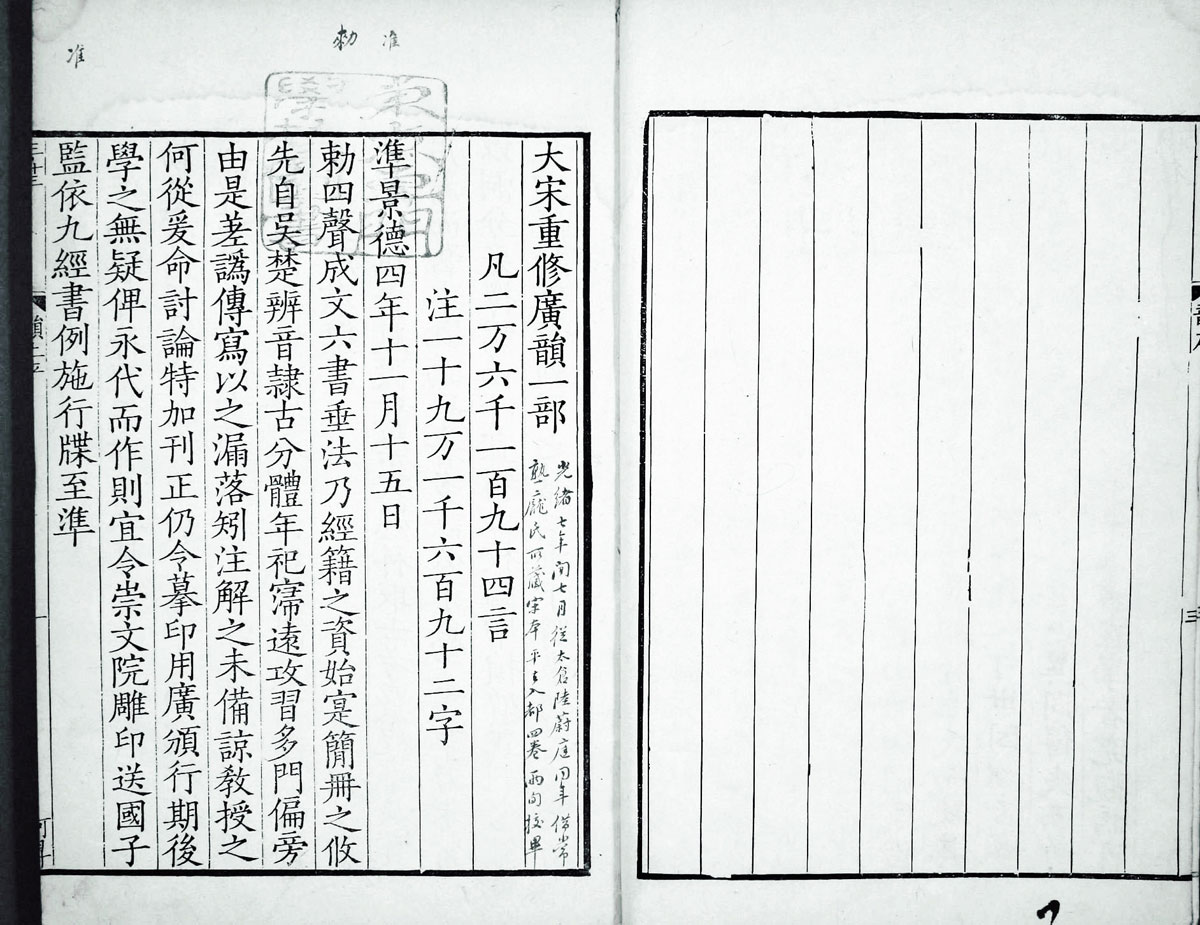 准
勑
准
大宋重修廣韻一部
光緒七年閏七月從太倉陸蔚庭同年借常
熟龐氏所藏宋本平上入都四卷兩旬挍畢
凡二万六千一百九十四言
注一十九万一千六百九十二字
準景德四年十一月十五日
勑四聲成文六書垂法乃經籍之資始寔簡冊之攸
先自吳楚辨音隷古分體年祀寖遠攻習多門偏旁
由是差譌傳寫以之漏落矧注解之未備諒敎授之
何從爰命討論特加刊正仍令摹印用廣頒行期後
學之無疑俾永代而作則宜令崇文院雕印送國子
監依九經書例施行牒至準